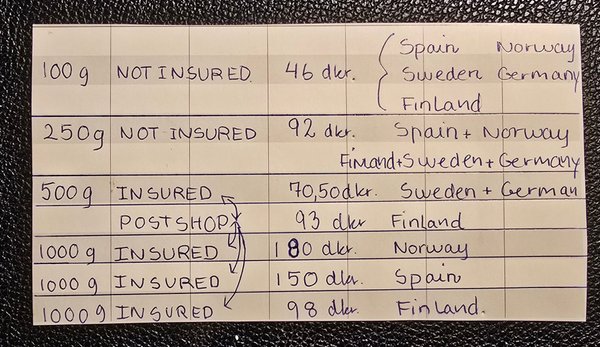 Spain Norway
100g NOT INSURED. 46 dkr. Sweden Germany
Finland
250g NOT INSURED 92 dkr. Spain + Norway
Finland + Sweden + Germany
500g INSURED 70,50dkr. Sweden + German
POSTSHOP 93 dkr Finland
1000 g INSURED 180 dkr. Norway
1000 g INSURED 150 dkr. Spain
1000 g INSURED 98 dkr. Finland.